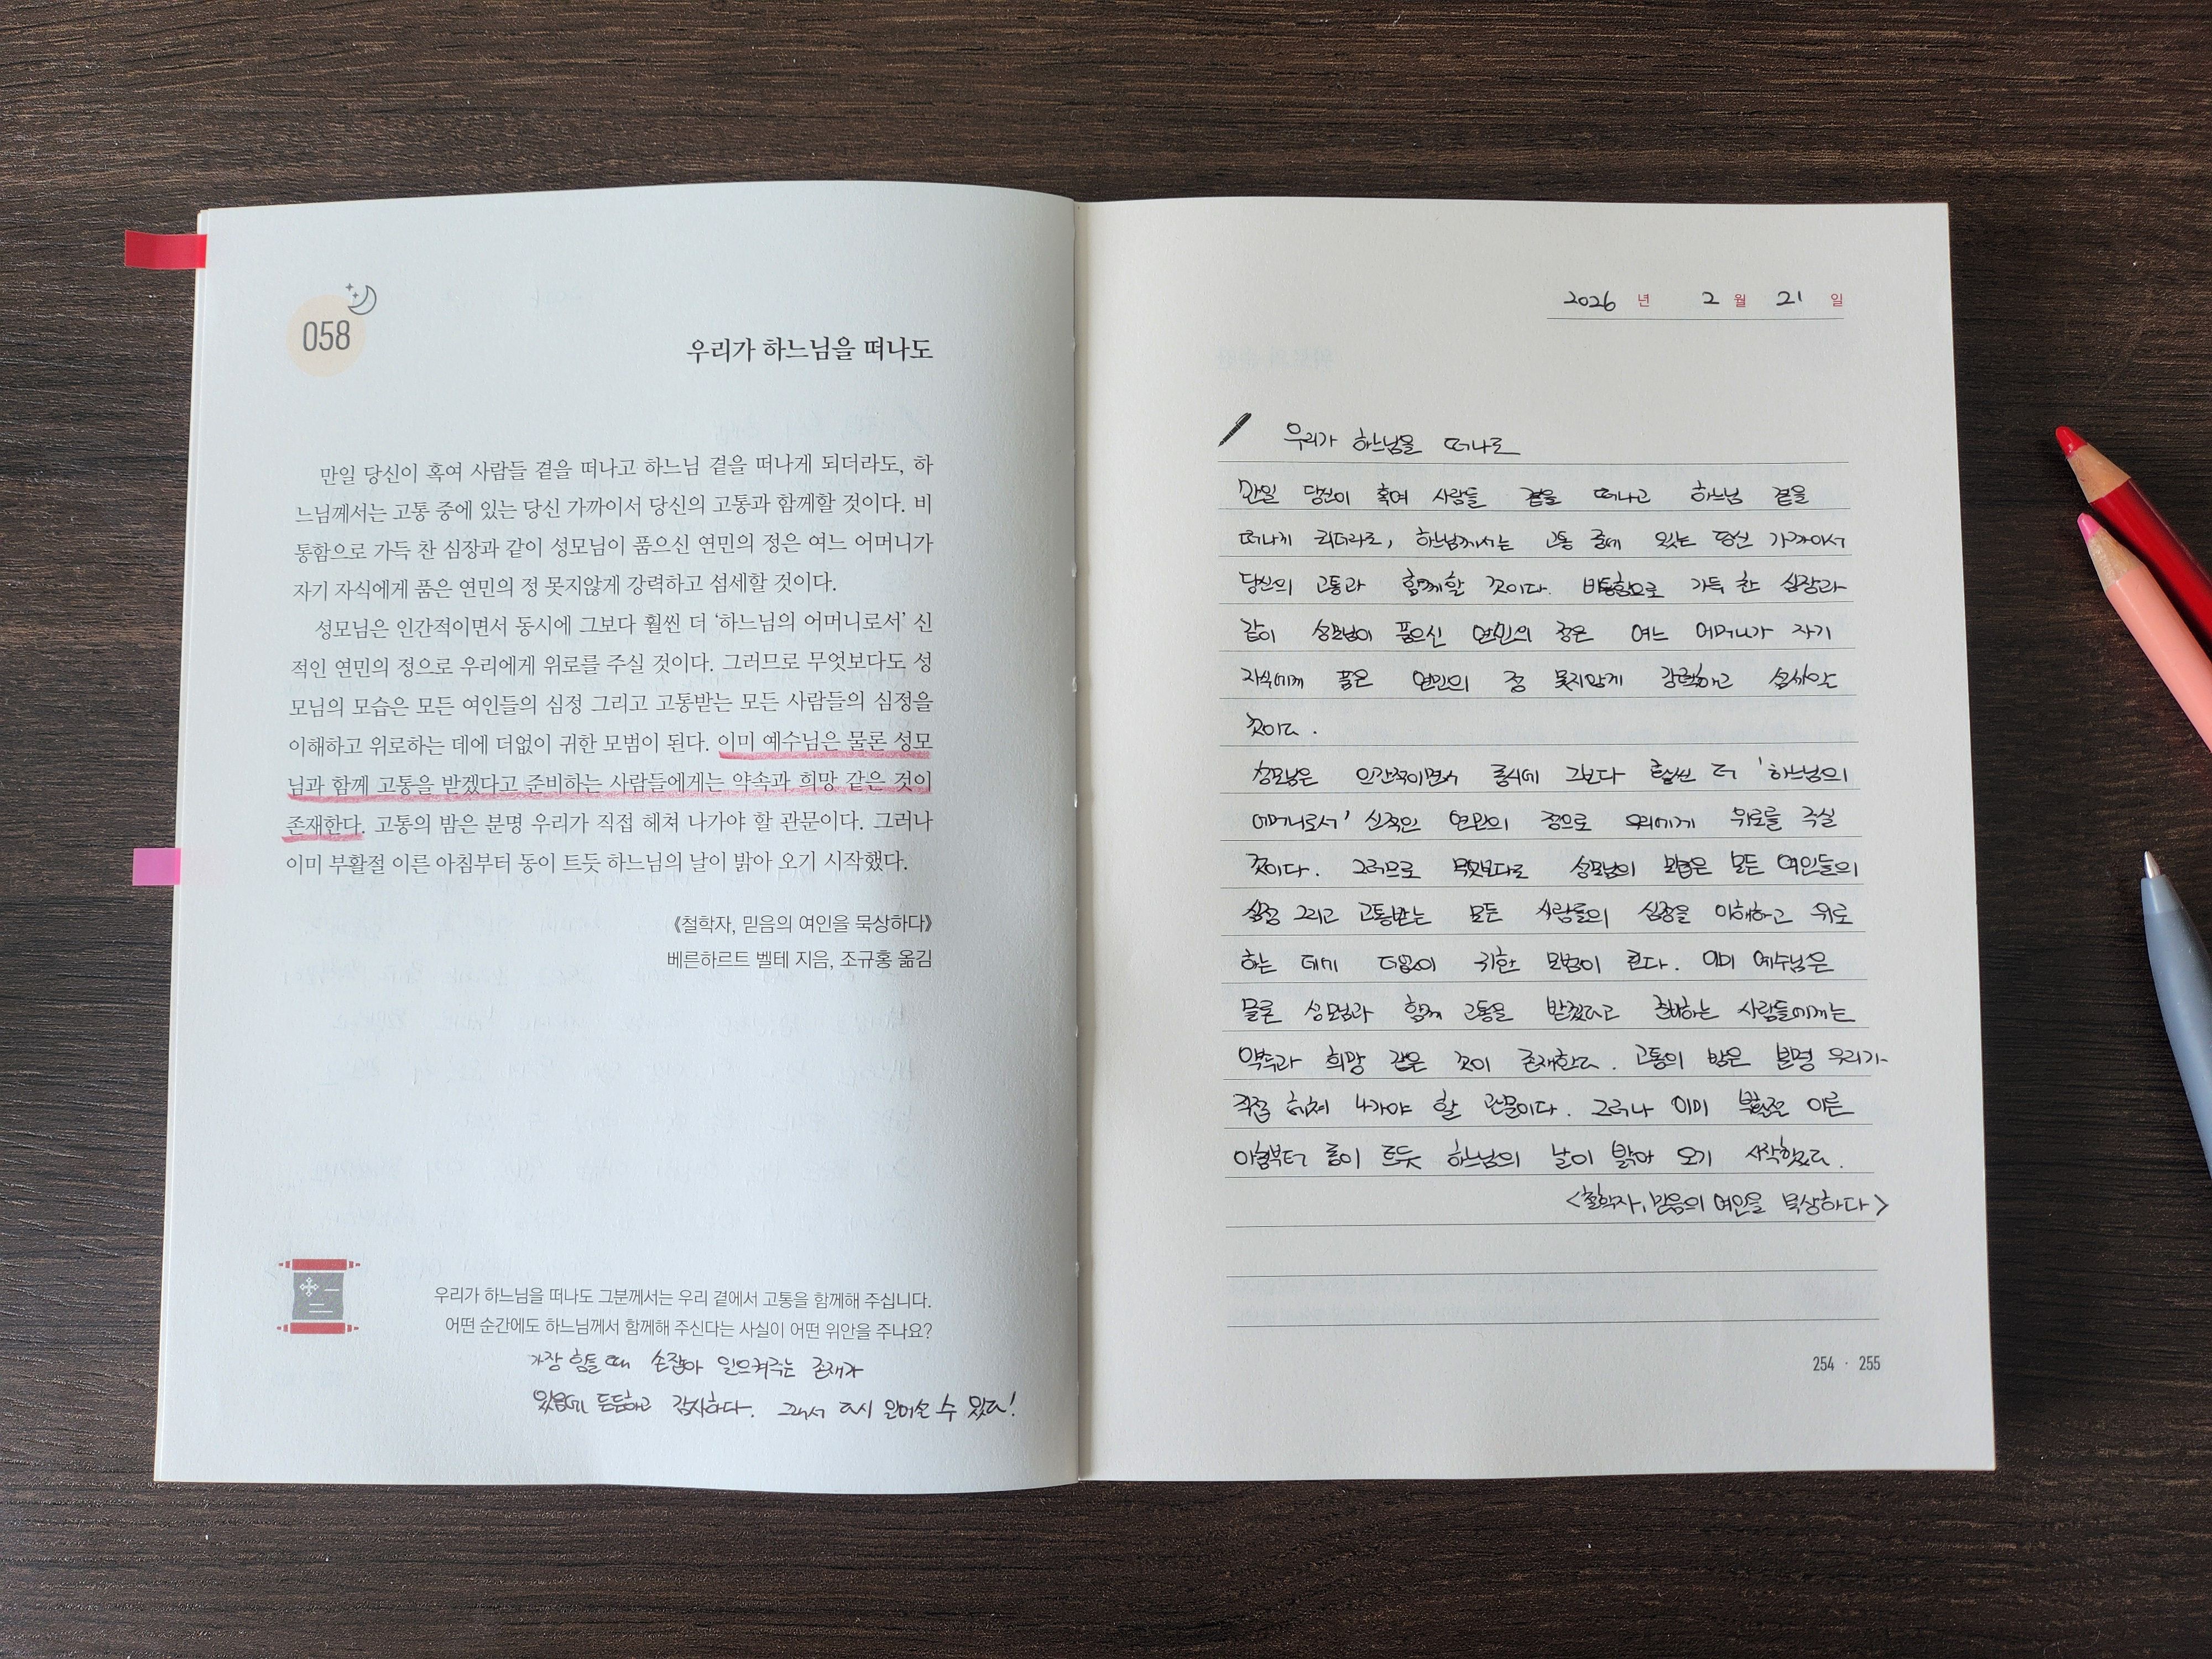 058
우리가 하느님을 떠나도
만일 당신이 혹여 사람들 곁을 떠나고 하느님 곁을 떠나게 되더라도, 하
느님께서는 고통 중에 있는 당신 가까이서 당신의 고통과 함께할 것이다. 비
통함으로 가득 찬 심장과 같이 성모님이 품으신 연민의 정은 여느 어머니가
자기 자식에게 품은 연민의 정 못지않게 강력하고 섬세할 것이다.
성모님은 인간적이면서 동시에 그보다 훨씬 더 ‘하느님의 어머니로서’ 신
적인 연민의 정으로 우리에게 위로를 주실 것이다. 그러므로 무엇보다도 성
모님의 모습은 모든 여인들의 심정 그리고 고통받는 모든 사람들의 심정을
이해하고 위로하는 데에 더없이 귀한 모범이 된다. 이미 예수님은 물론 성모
님과 함께 고통을 받겠다고 준비하는 사람들에게는 약속과 희망 같은 것이
존재한다. 고통의 밤은 분명 우리가 직접 헤쳐 나가야 할 관문이다. 그러나
이미 부활절 이른 아침부터 동이 트듯 하느님의 날이 밝아 오기 시작했다.
《철학자, 믿음의 여인을 묵상하다》
베른하르트 벨테 지음, 조규홍 옮김
우리가 하느님을 떠나도 그분께서는 우리 곁에서 고통을 함께해 주십니다.
어떤 순간에도 하느님께서 함께해 주신다는 사실이 어떤 위안을 주나요?
가장 힘들 때 손잡아 일으켜주는 존재가
있음에 든든하고 감사하다. 그래서 다시 일어설 수 있다!
2026 년 2 월 21 일
우리가 하느님을 떠나도
만일 당신이 혹여 사람들 곁을 떠나고 하느님 곁을
떠나게 되더라도, 하느님께서는 고통 중에 있는 당신 가까이서
당신의 고통과 함께할 것이다. 비통함으로 가득 찬 심장과
같이 성모님이 품으신 연민의 정은 여느 어머니가 자기
자식에게 품은 연민의 정 못지않게 강력하고
것이다.
성모님은 인간적이면서 동시에 그보다 훨씬 더 '하느님의
어머니로서' 신적인 연민의 정으로 우리에게 위로를 주실
것이다. 그러므로 무엇보다도 성모님의 모습은 모든 여인들의
심정 그리고 고통받는 모든 사람들의 심정을 이해하고 위로
하는 데에 더없이 귀한 모범이 된다. 이미 예수님은
물론 성모님과 함께 고통을 받겠다고 준비하는 사람들에게는
약속과 희망 같은 것이 존재한다. 고통의 밤은 분명 우리가
직접 헤쳐 나가야 할 관문이다. 그러나 이미 부활절 이른
아침부터 동이 트듯 하느님의 날이 밝아 오기 시작했다.
<철학자, 믿음의 여인을 묵상하다>
254 · 255